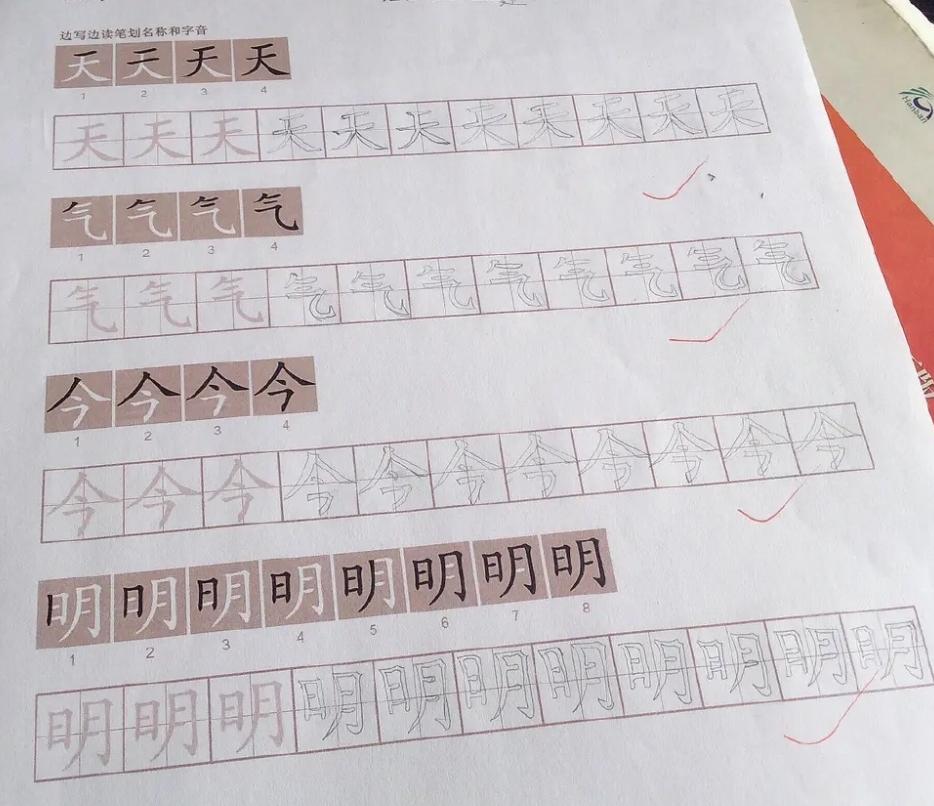 边写边读笔划名称和字音
天 天 天 天
1 2 3 4
天 天 天 天 天 天 天 天 天 天 天
气 气 气 气
1 2 3 4
气 气 气 气 气 气 气 气 气 气 气
今 今 今 今
1 2 3 4
今 今 今 今 今 今 今 今 今 今 今
明 明 明 明 明 明 明 明
1 2 3 4 5 6 7 8
明 明 明 明 明 明 明 明 明 明 明
Hanban